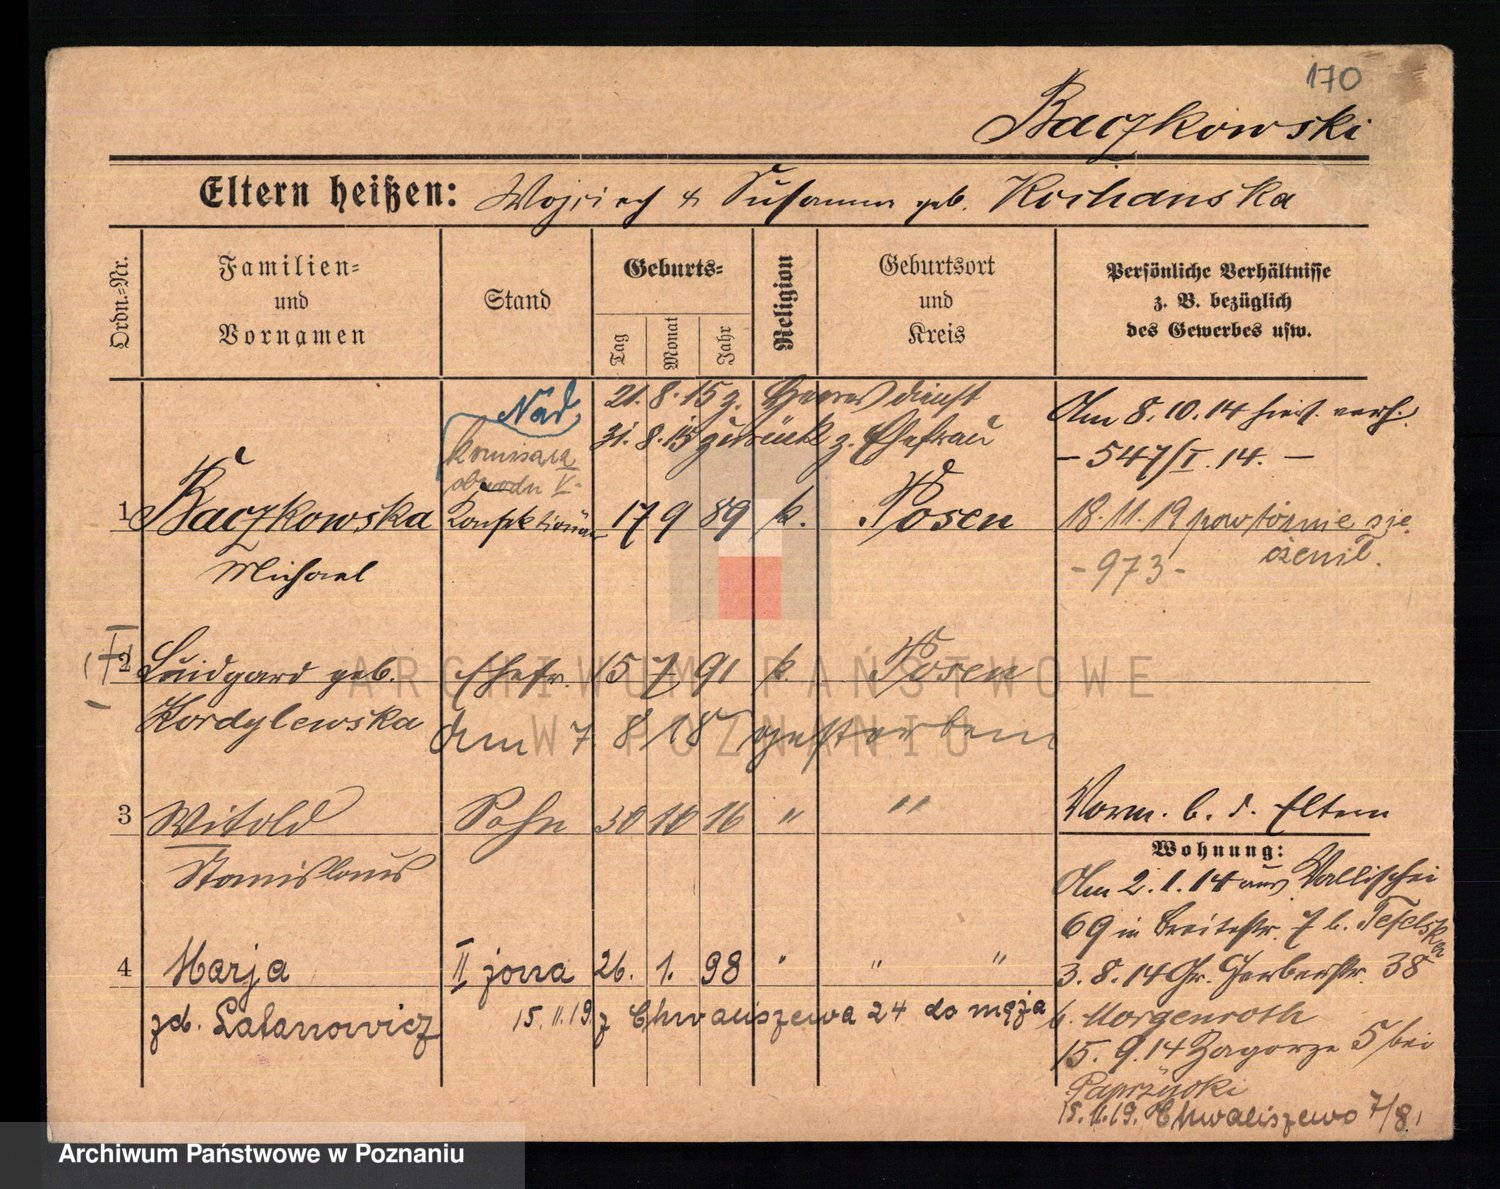 170
Baczkowski
Eltern heißen: Wojciech & Susanna geb. Kochanska
Ordn.-Nr.
Familien-
und
Vornamen
Stand
Geburts-
Tag
Monat
Jahr
Religion
Geburtsort
und
Kreis
Persönliche Verhältnisse
z. B. bezüglich
des Gewerbes usw.
21. 8. 15 z. Heeresdienst
31. 8. 15 zurück z. Ehefrau
Am 8.10.14 hier verh.
- 547/I. 14. -
Nad
komisarz
obwodu V.
1 Baczkowska Konfektionär 17 9 89 k. Posen
Michael
18. 11. 19 powtórnie się
ożenił.
- 973 -
2 Luidgard geb. Ehefr. 15 7 91 k. Posen
Kordylewska
am 7. 8 18 gestorben
3 Witold Sohn 30 10 16 " "
Stanislaus
Vorm. b. d. Eltern
Wohnung:
Am 2. 1. 14 aus Wallischei
69 in Breitestr. 7 b. Teselska
3. 8. 14 Gr. Gerberstr. 38
b. Morgenroth
15. 9. 14 Zagorze 5 bei
Paprzycki
15. 11. 19. Chwaliszewo 7/8.
4 Marja II żona 26. 1. 98 " " "
zd. Latanowicz
15. 11. 19. z Chwaliszewa 24 do męża
ARCHIWUM PAŃSTWOWE
W POZNANIU
Archiwum Państwowe w Poznaniu